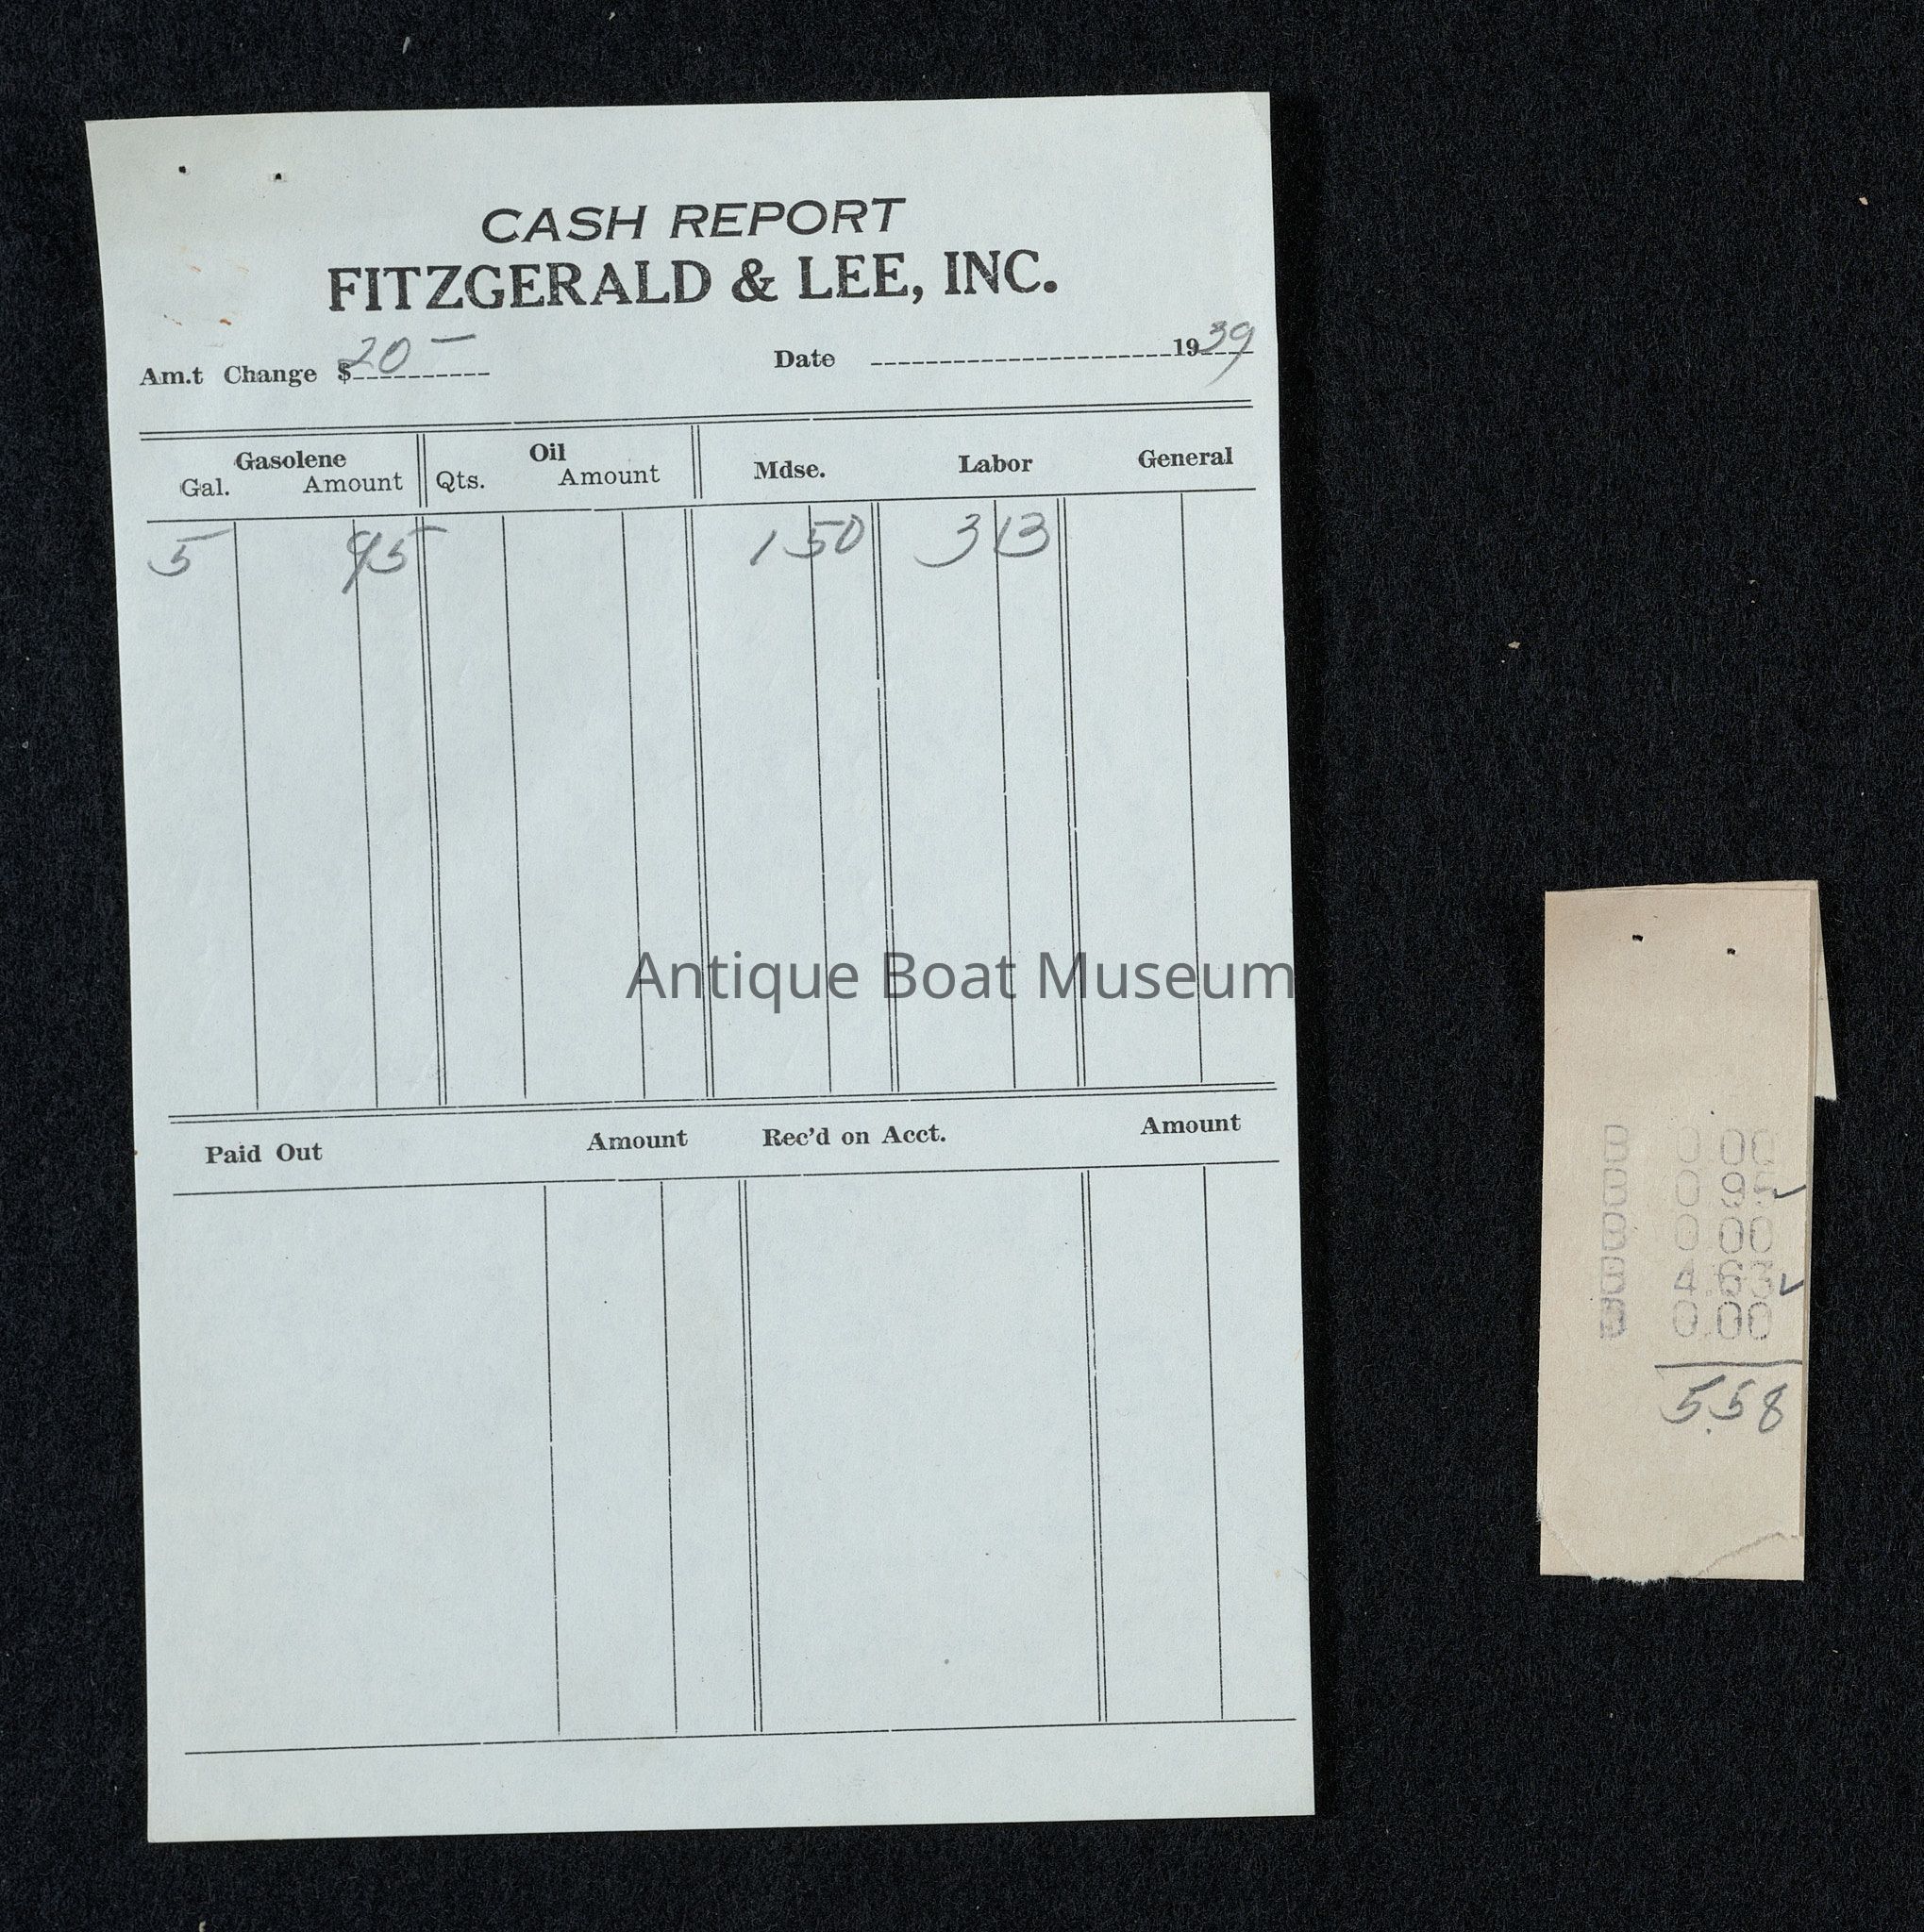 CASH REPORT
FITZGERALD & LEE, INC.
Am.t Change $20 — Date 1939
Gasolene Oil Mdse. Labor General
Gal. Amount Qts. Amount
5 95 1 50 3 13
Antique Boat Museum
Paid Out Amount Rec'd on Acct. Amount
B 0.00
B 0.95 ✓
B 0.00
B 4.63 ✓
B 0.00
5.58